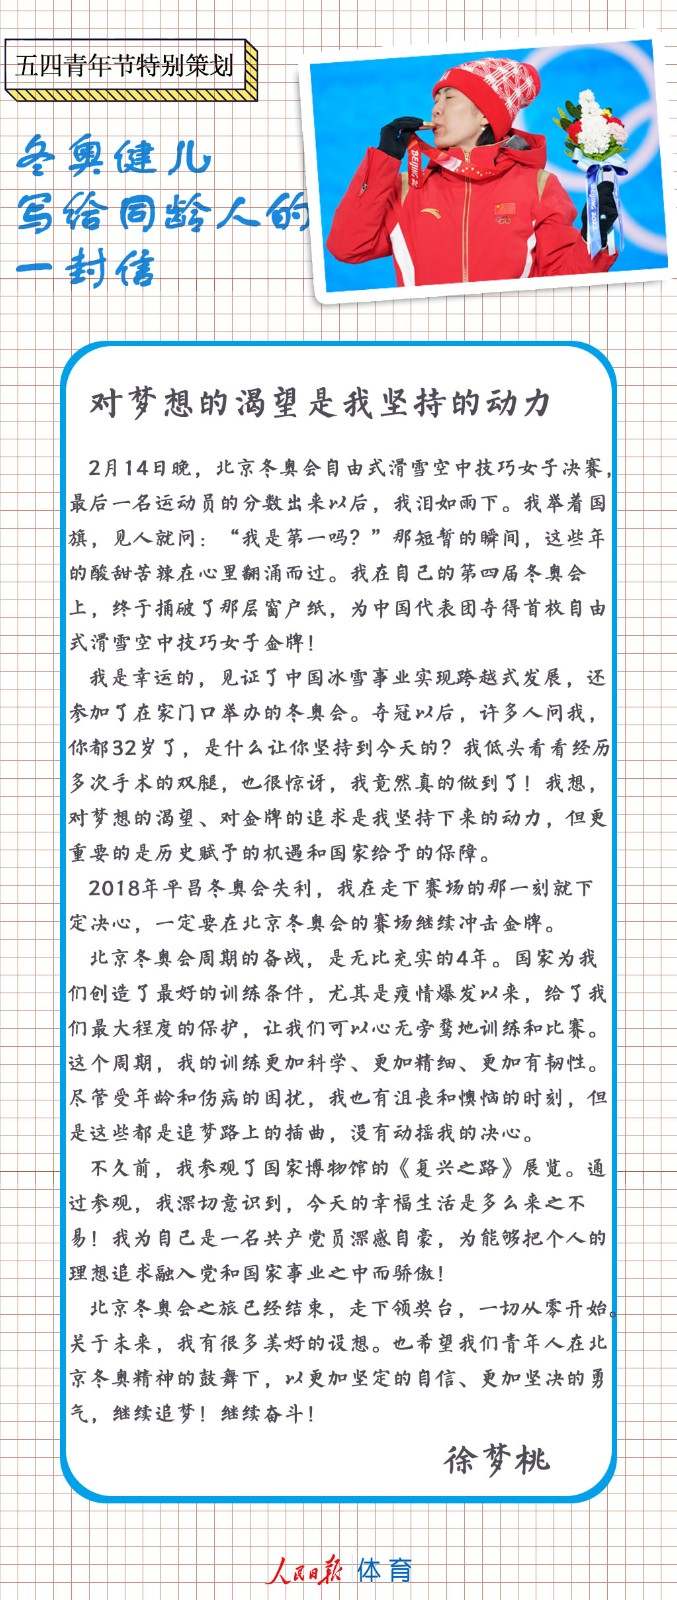 五四青年节特别策划
冬奥健儿
写给同龄人的
一封信
BEIJING 20
对梦想的渴望是我坚持的动力
2月14日晚，北京冬奥会自由式滑雪空中技巧女子决赛，
最后一名运动员的分数出来以后，我泪如雨下。我举着国
旗，见人就问：“我是第一吗？”那短暂的瞬间，这些年
的酸甜苦辣在心里翻涌而过。我在自己的第四届冬奥会
上，终于捅破了那层窗户纸，为中国代表团夺得首枚自由
式滑雪空中技巧女子金牌！
我是幸运的，见证了中国冰雪事业实现跨越式发展，还
参加了在家门口举办的冬奥会。夺冠以后，许多人问我，
你都32岁了，是什么让你坚持到今天的？我低头看看经历
多次手术的双腿，也很惊讶，我竟然真的做到了！我想，
对梦想的渴望、对金牌的追求是我坚持下来的动力，但更
重要的是历史赋予的机遇和国家给予的保障。
2018年平昌冬奥会失利，我在走下赛场的那一刻就下
定决心，一定要在北京冬奥会的赛场继续冲击金牌。
北京冬奥会周期的备战，是无比充实的4年。国家为我
们创造了最好的训练条件，尤其是疫情爆发以来，给了我
们最大程度的保护，让我们可以心无旁骛地训练和比赛。
这个周期，我的训练更加科学、更加精细、更加有韧性。
尽管受年龄和伤病的困扰，我也有沮丧和懊恼的时刻，但
是这些都是追梦路上的插曲，没有动摇我的决心。
不久前，我参观了国家博物馆的《复兴之路》展览。通
过参观，我深切意识到，今天的幸福生活是多么来之不
易！我为自己是一名共产党员深感自豪，为能够把个人的
理想追求融入党和国家事业之中而骄傲！
北京冬奥会之旅已经结束，走下领奖台，一切从零开始。
关于未来，我有很多美好的设想。也希望我们青年人在北
京冬奥精神的鼓舞下，以更加坚定的自信、更加坚决的勇
气，继续追梦！继续奋斗！
徐梦桃
人民日报 体育